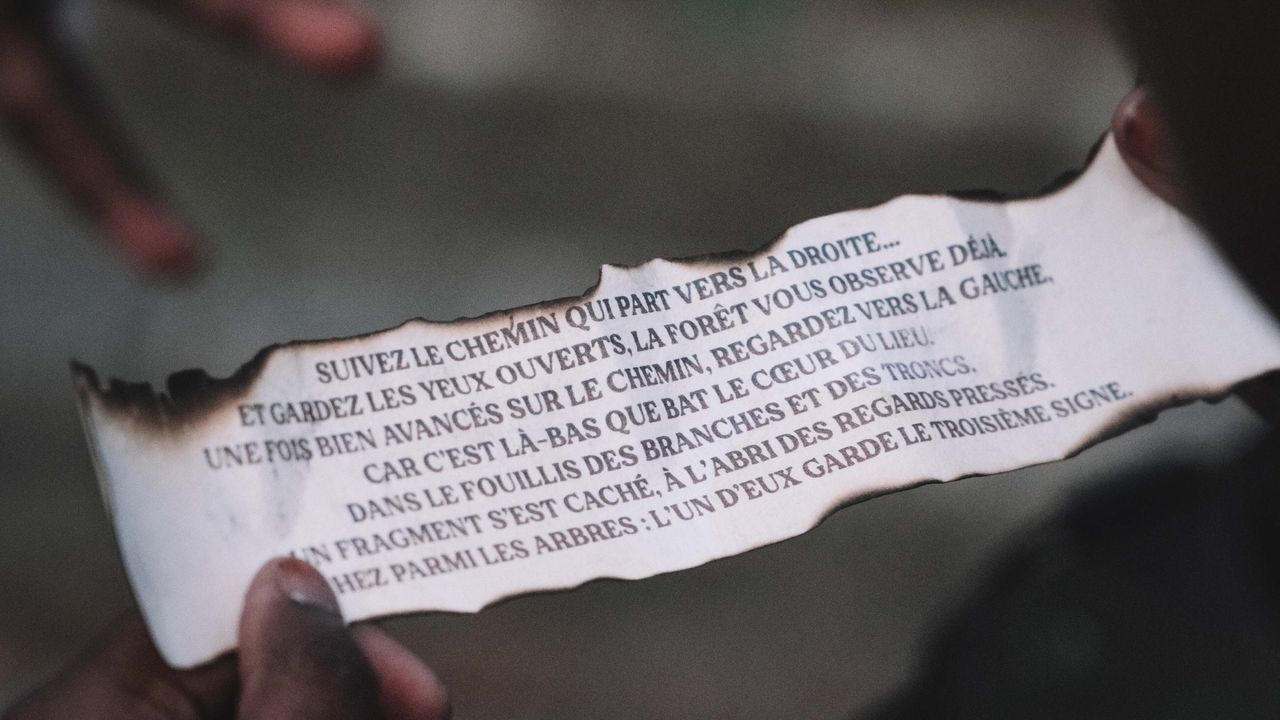 SUIVEZ LE CHEMIN QUI PART VERS LA DROITE...
ET GARDEZ LES YEUX OUVERTS, LA FORÊT VOUS OBSERVE DÉJÀ.
UNE FOIS BIEN AVANCÉS SUR LE CHEMIN, REGARDEZ VERS LA GAUCHE,
CAR C'EST LÀ-BAS QUE BAT LE CŒUR DU LIEU.
DANS LE FOUILLIS DES BRANCHES ET DES TRONCS.
UN FRAGMENT S'EST CACHÉ, À L'ABRI DES REGARDS PRESSÉS.
HEZ PARMI LES ARBRES : L'UN D'EUX GARDE LE TROISIÈME SIGNE.